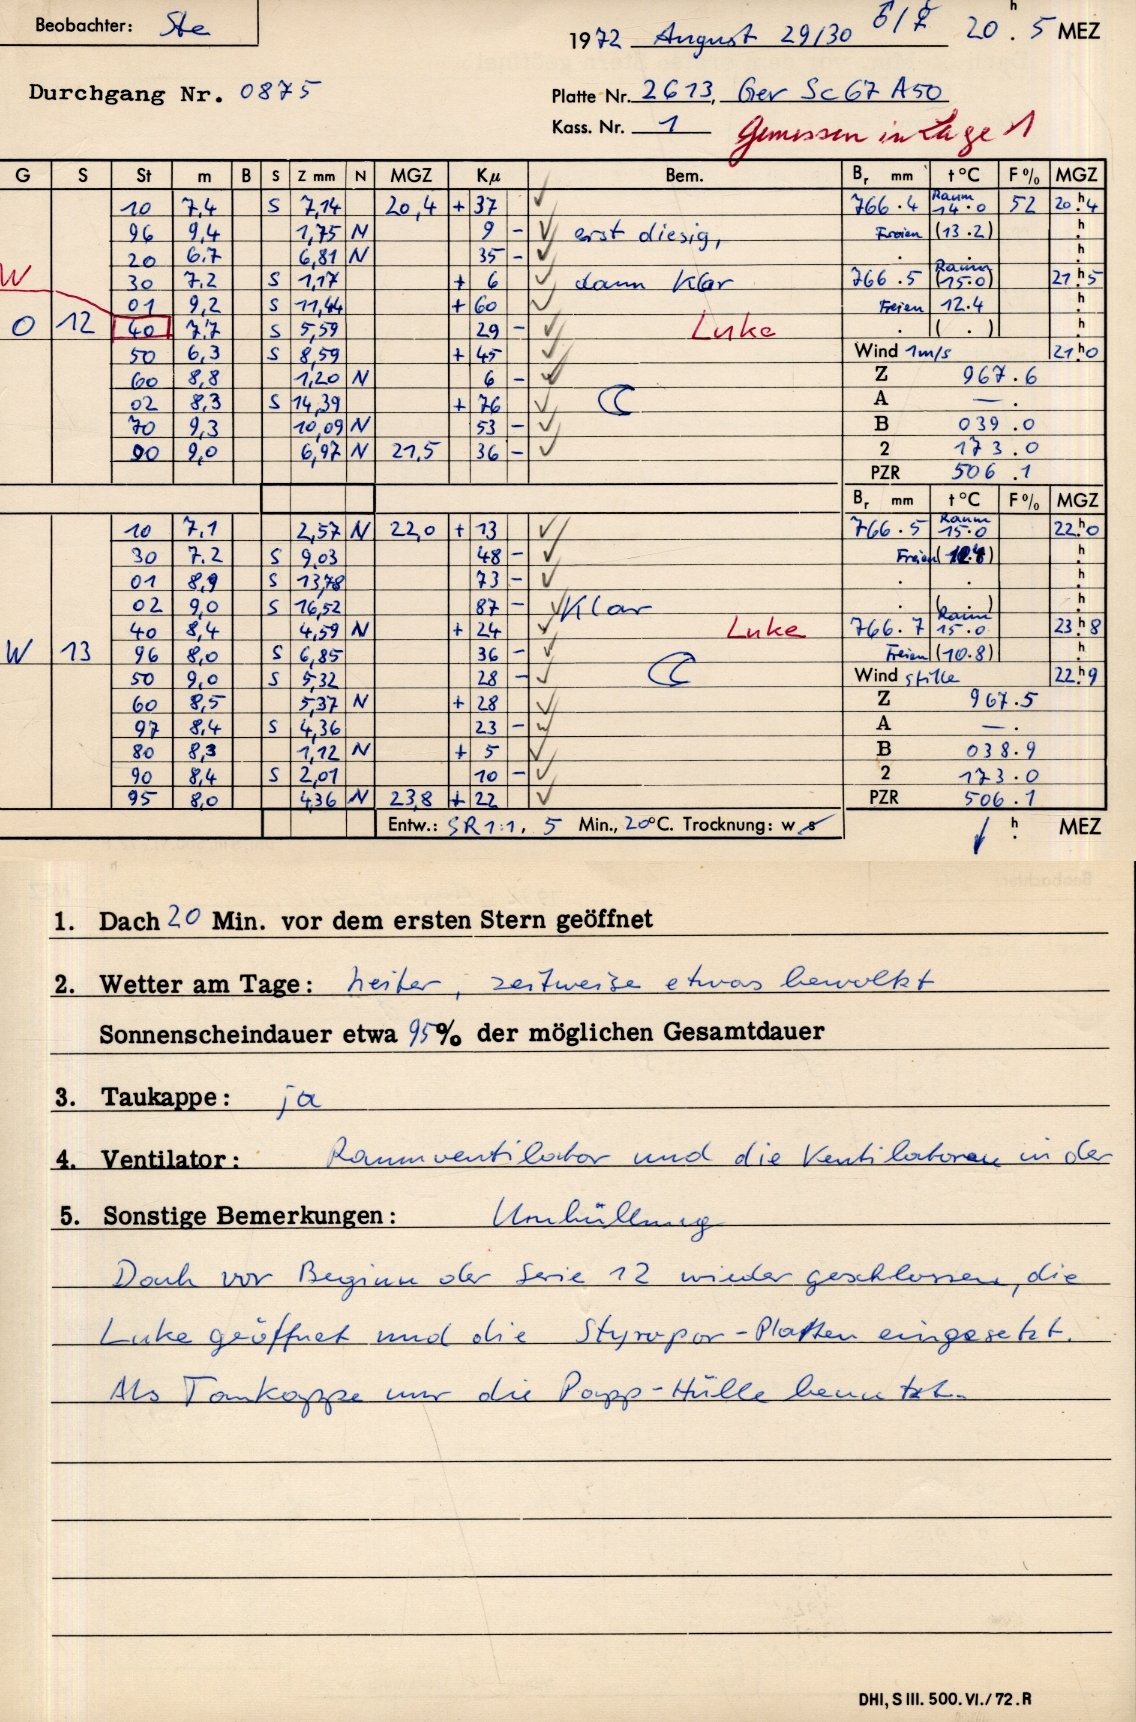 Beobachter: Ste
1972 August 29/30 20 h . 5 MEZ
Durchgang Nr. 0875
Platte Nr. 2613, Ger Sc 67 A50
Kass. Nr. 1 Gemessen in Lage 1
G S St m B S Z mm N MGZ Kμ Bem. Br mm t °C F % MGZ
10 7,4 S 7,14 20,4 + 37 766.4 Raum 14.0 52 20 h 4
96 9,4 1,75 N 9 - erst diesig, Freien (13.2) h
20 6.7 6,81 N 35 - . . h
W 30 7.2 S 1,17 + 6 dann klar 766.5 Raum (15.0) 21 h 5
01 9,2 S 11,44 + 60 Freien 12.4 h
O 12 40 7,7 S 5,59 29 - Luke . ( . ) h
50 6,3 S 8,59 + 45 Wind 1m/s 21 h 0
60 8,8 1,20 N 6 - Z 967.6
02 8,3 S 14,39 + 76 A — .
70 9,3 10,09 N 53 - B 039.0
90 9,0 6,97 N 21,5 36 - 2 173.0
PZR 506.1
Br mm t °C F % MGZ
10 7,1 2,57 N 22,0 + 13 766.5 Raum 15.0 22 h 0
30 7.2 S 9,03 48 - Freien h
01 8,9 S 13,78 73 - . . h
02 9,0 S 16,52 87 - Klar . ( . ) h
40 8,4 4,59 N + 24 Luke 766.7 Raum 15.0 23 h 8
W 13 96 8,0 S 6,85 36 - Freien (10.8) h
50 9,0 S 5,32 28 - Wind stille 22 h 9
60 8,5 5,37 N + 28 Z 967.5
97 8,4 S 4,36 23 - A — .
80 8,3 1,12 N + 5 B 038.9
90 8,4 S 2,01 10 - 2 173.0
95 8,0 4,36 N 23,8 + 22 PZR 506.1
Entw.: SR 1:1, 5 Min., 20°C. Trocknung: w s h . MEZ
1. Dach 20 Min. vor dem ersten Stern geöffnet
2. Wetter am Tage: heiter, zeitweise etwas bewölkt
Sonnenscheindauer etwa 95% der möglichen Gesamtdauer
3. Taukappe: ja
4. Ventilator: Raumventilator und die Ventilatoren in der
5. Sonstige Bemerkungen: Umhüllung
Dach vor Beginn der Serie 12 wieder geschlossen, die
Luke geöffnet und die Styropor-Platten eingesetzt.
Als Taukappe nur die Papp-Hülle benutzt.
DHI, S III. 500. VI./72. R